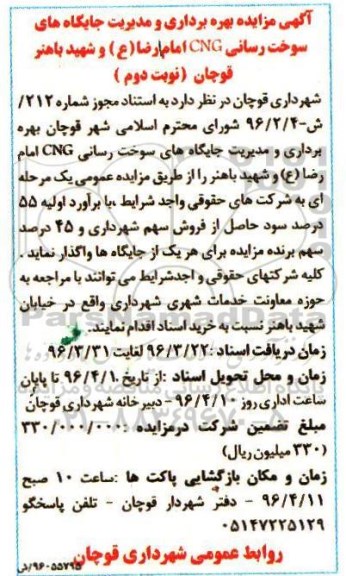 آگهی مزایده بهره برداری و مدیریت جایگاه های
سوخت رسانی CNG امام رضا (ع) و شهید باهنر
قوچان (نوبت دوم)
شهرداری قوچان در نظر دارد به استناد مجوز شماره ۲۱۲/
ش-۹۶/۲/۴ شورای محترم اسلامی شهر قوچان بهره
برداری و مدیریت جایگاه های سوخت رسانی CNG امام
رضا (ع) و شهید باهنر را از طریق مزایده عمومی یک مرحله
ای به شرکت های حقوقی واجد شرایط ،با برآورد اولیه ۵۵
درصد سود حاصل از فروش سهم شهرداری و ۴۵ درصد
سهم برنده مزایده برای هر یک از جایگاه ها واگذار نماید .
کلیه شرکتهای حقوقی و اجدشرایط می توانند با مراجعه به
حوزه معاونت خدمات شهری شهرداری واقع در خیابان
شهید باهنر نسبت به خرید اسناد اقدام نمایند.
زمان دریافت اسناد :۹۶/۳/۲۲ لغایت ۹۶/۳/۳۱
زمان و محل تحویل اسناد :از تاریخ ۹۶/۴/۱ تا پایان
ساعت اداری روز ۹۶/۴/۱۰ - دبیر خانه شهرداری قوچان
مبلغ تضمین شرکت درمزایده :۳۳۰/۰۰۰/۰۰۰
(۳۳۰ میلیون ریال)
زمان و مکان بازگشایی پاکت ها :ساعت ۱۰ صبح
۹۶/۴/۱۱ - دفتر شهردار قوچان - تلفن پاسخگو
۰۵۱۴۷۲۲۵۱۲۹
روابط عمومی شهرداری قوچان
۹۶۰۵۵۷۹۵/ض
ParsNamadData